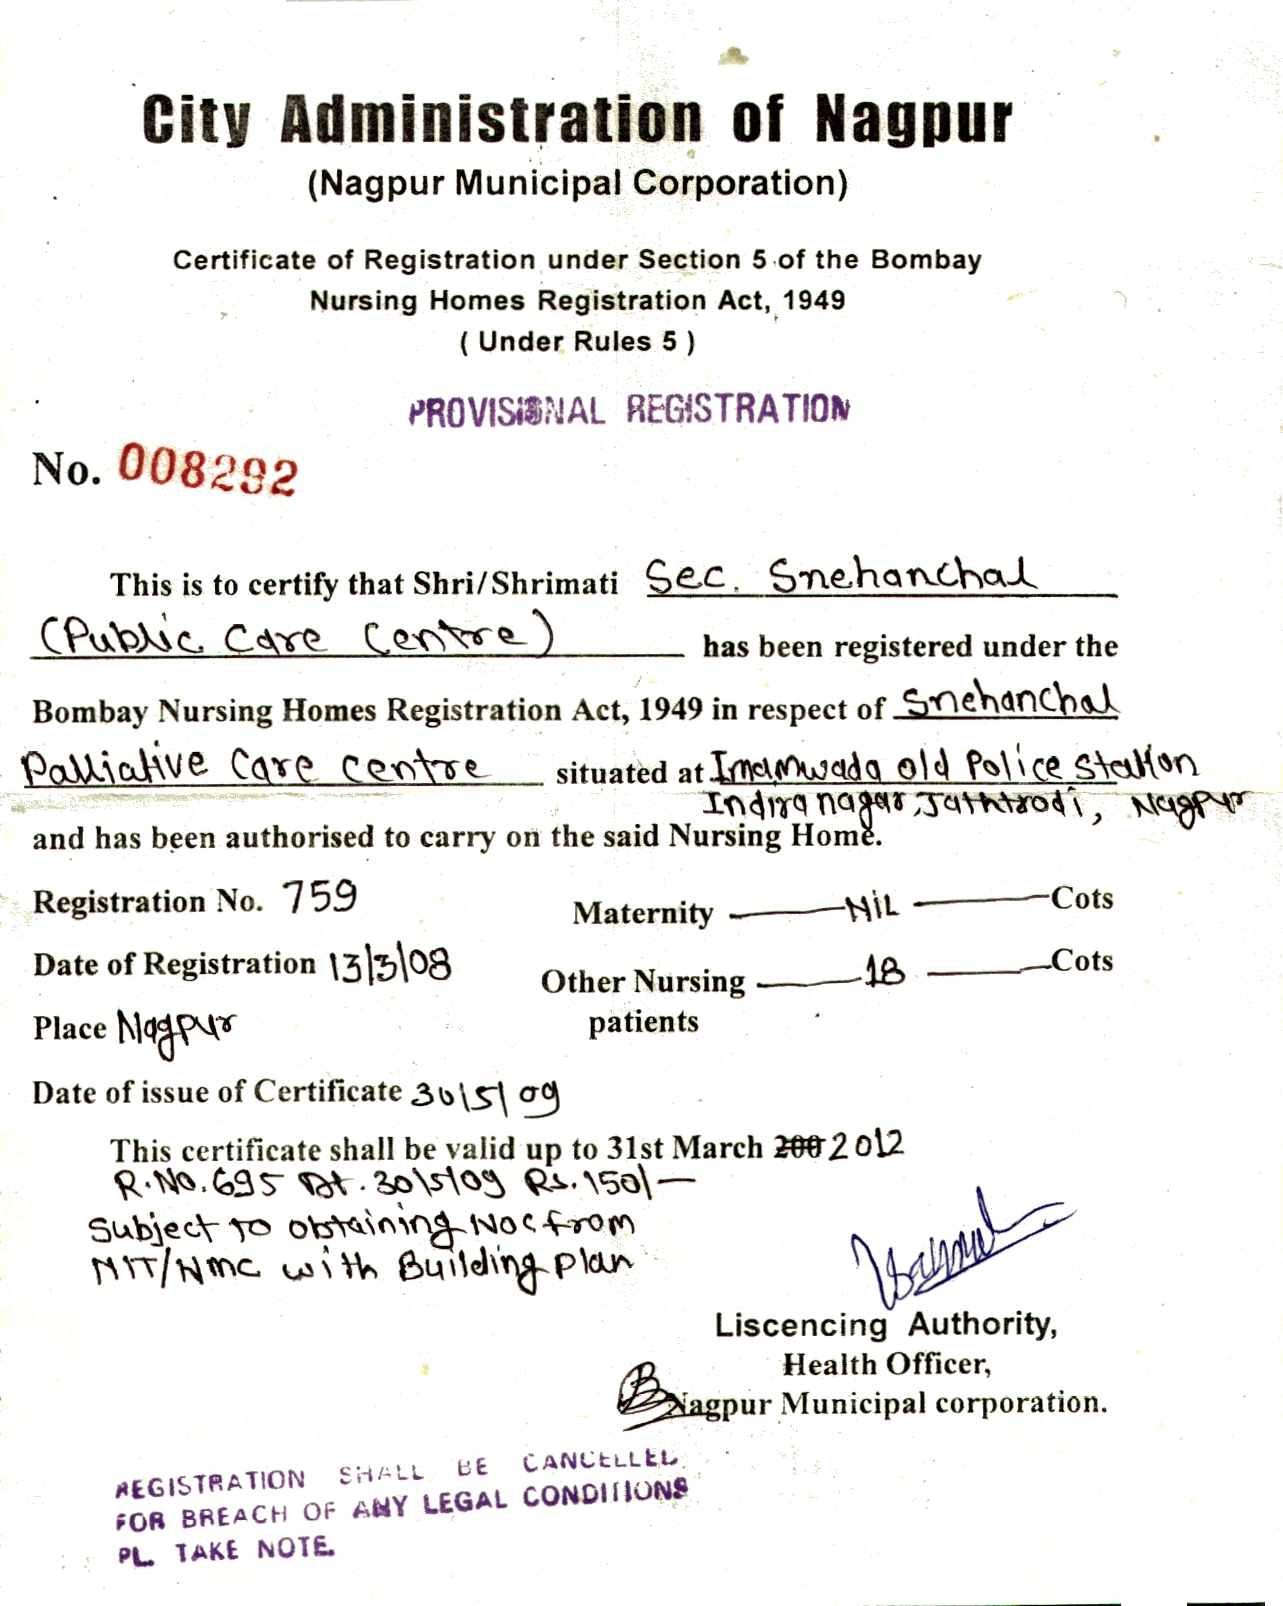 City Administration of Nagpur
(Nagpur Municipal Corporation)
Certificate of Registration under Section 5 of the Bombay
Nursing Homes Registration Act, 1949
( Under Rules 5 )
PROVISIONAL REGISTRATION
No. 008292
This is to certify that Shri/Shrimati Sec. Snehanchal
(Public Care Centre) has been registered under the
Bombay Nursing Homes Registration Act, 1949 in respect of Snehanchal
Palliative Care Centre situated at Imamwada old Police Station
Indira nagar, Jathtrodi, Nagpur
and has been authorised to carry on the said Nursing Home.
Registration No. 759 Maternity NIL Cots
Date of Registration 13/3/08 Other Nursing 18 Cots
Place Nagpur patients
Date of issue of Certificate 30/5/09
This certificate shall be valid up to 31st March 200 2012
R.No. 695 Dt. 30/5/09 Rs. 150/-
Subject to obtaining NOC from
NIT/NMC with Building plan
Liscencing Authority,
Health Officer,
Nagpur Municipal corporation.
REGISTRATION SHALL BE CANCELLED
FOR BREACH OF ANY LEGAL CONDITIONS
PL. TAKE NOTE.